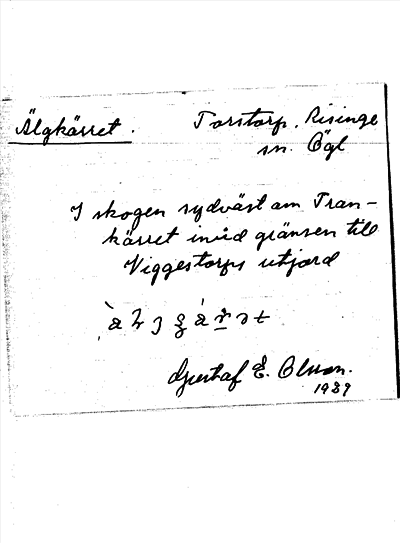 Älgkärret. Torstorp, Risinge
sn. Ögl
I skogen sydväst om Tran-
kärret invid gränsen till
Viggestorps utjord
Gustaf E. Olsson.
1939